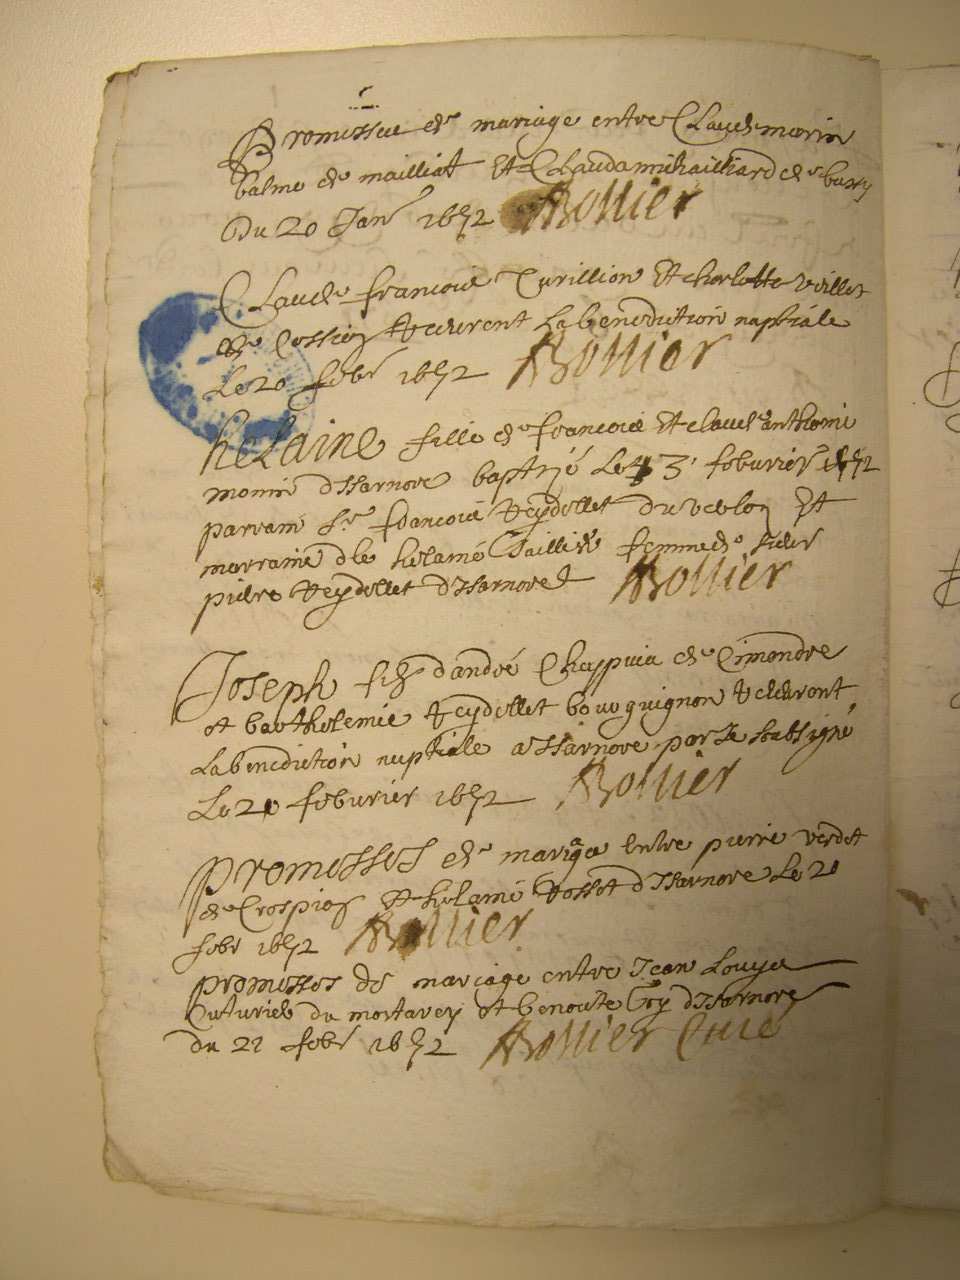 Promesse de mariage entre Claude marin
balme de mailliat Et Clauda michailliard de bussy
Du 20 Janr 1652 ABollier
Claude francois Turillion Et charlotte veillet
de Cossiez receurent La benediction nuptiale
Le 20 febr 1652 ABollier
helaine fille de francois Et claude anthoine
monin dIsarnore baptizé Le 3 feburier 1652
parrain Sr francois reydellet du Et
marraine dle helaine femme de
pierre reydellet dIsarnore ABollier
Joseph filz dandré Chappuis de Cimandre
et bartholemie reydellet bourguignon receurent
La benediction nuptiale a Isarnore par le soubsigné
Le 20 feburier 1652 ABollier
promesses de mariage entre pierre verdet
de Crospiez Et helaine rosset dIsarnore Le 20
febr 1652 ABollier
promesses de mariage entre Jean Louys
Cuturier du mortarey et benoite Goy dIsarnore
du 21 febr 1652 ABollier Curé